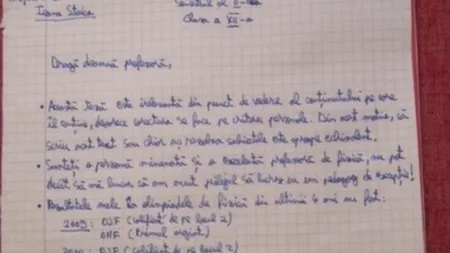 Ioana Stoica
Semestrul al II-lea
Clasa a XII-a
Dragă doamnă profesoară,
• Această teză este irelevantă din punct de vedere al conținutului pe care
îl conține, deoarece corectura se face pe criterii personale. Din acest motiv, că
scriu acest text sau chiar aș rezolva subiectele este aproape echivalent.
• Sunteți o persoană minunată și o excelentă profesoară de fizică, nu pot
decât să mă bucur că am avut privilegiul să lucrez cu un pedagog de excepție!
• Rezultatele mele la olimpiadele de fizică din ultimii ani au fost:
2009: OJF (calificat de pe locul 2)
ONF (Premiul
OJF (calificat de pe locul 2)